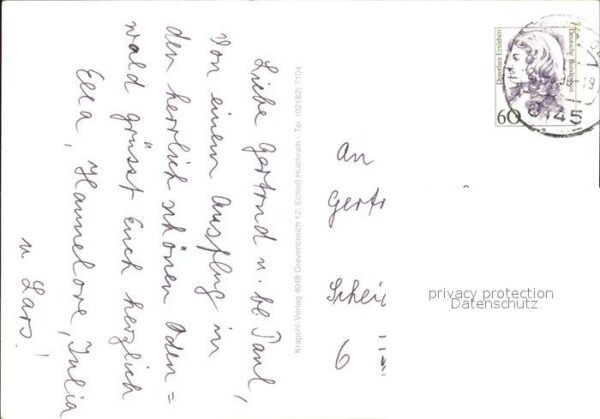 Liebe Gertrud u. lb Paul,
Von einem Ausflug in
den herrlich schönen Oden=
wald grüsst Euch herzlich
Ella, Hannelore, Julia
u Lars!
Krapohl-Verlag 4048 Grevenbroich 12, Schloß Hülchrath - Tel. (02182) 7104
Dorothea Erxleben
Deutsche Bundespost
60
6145
An
Gertr
Schei
6
privacy protection
Datenschutz